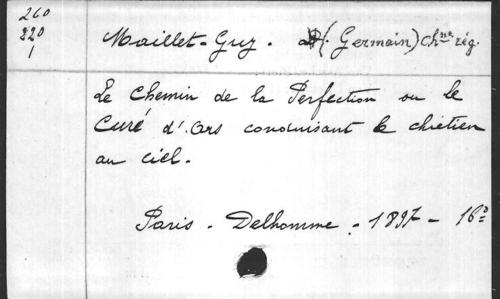 260
220
1
Maillet-Guy. (Germain) Ch.ne rég.
Le Chemin de la Perfection ou le
Curé d'Ars conduisant le chrétien
au ciel.
Paris - Delhomme. - 1897 - 16°